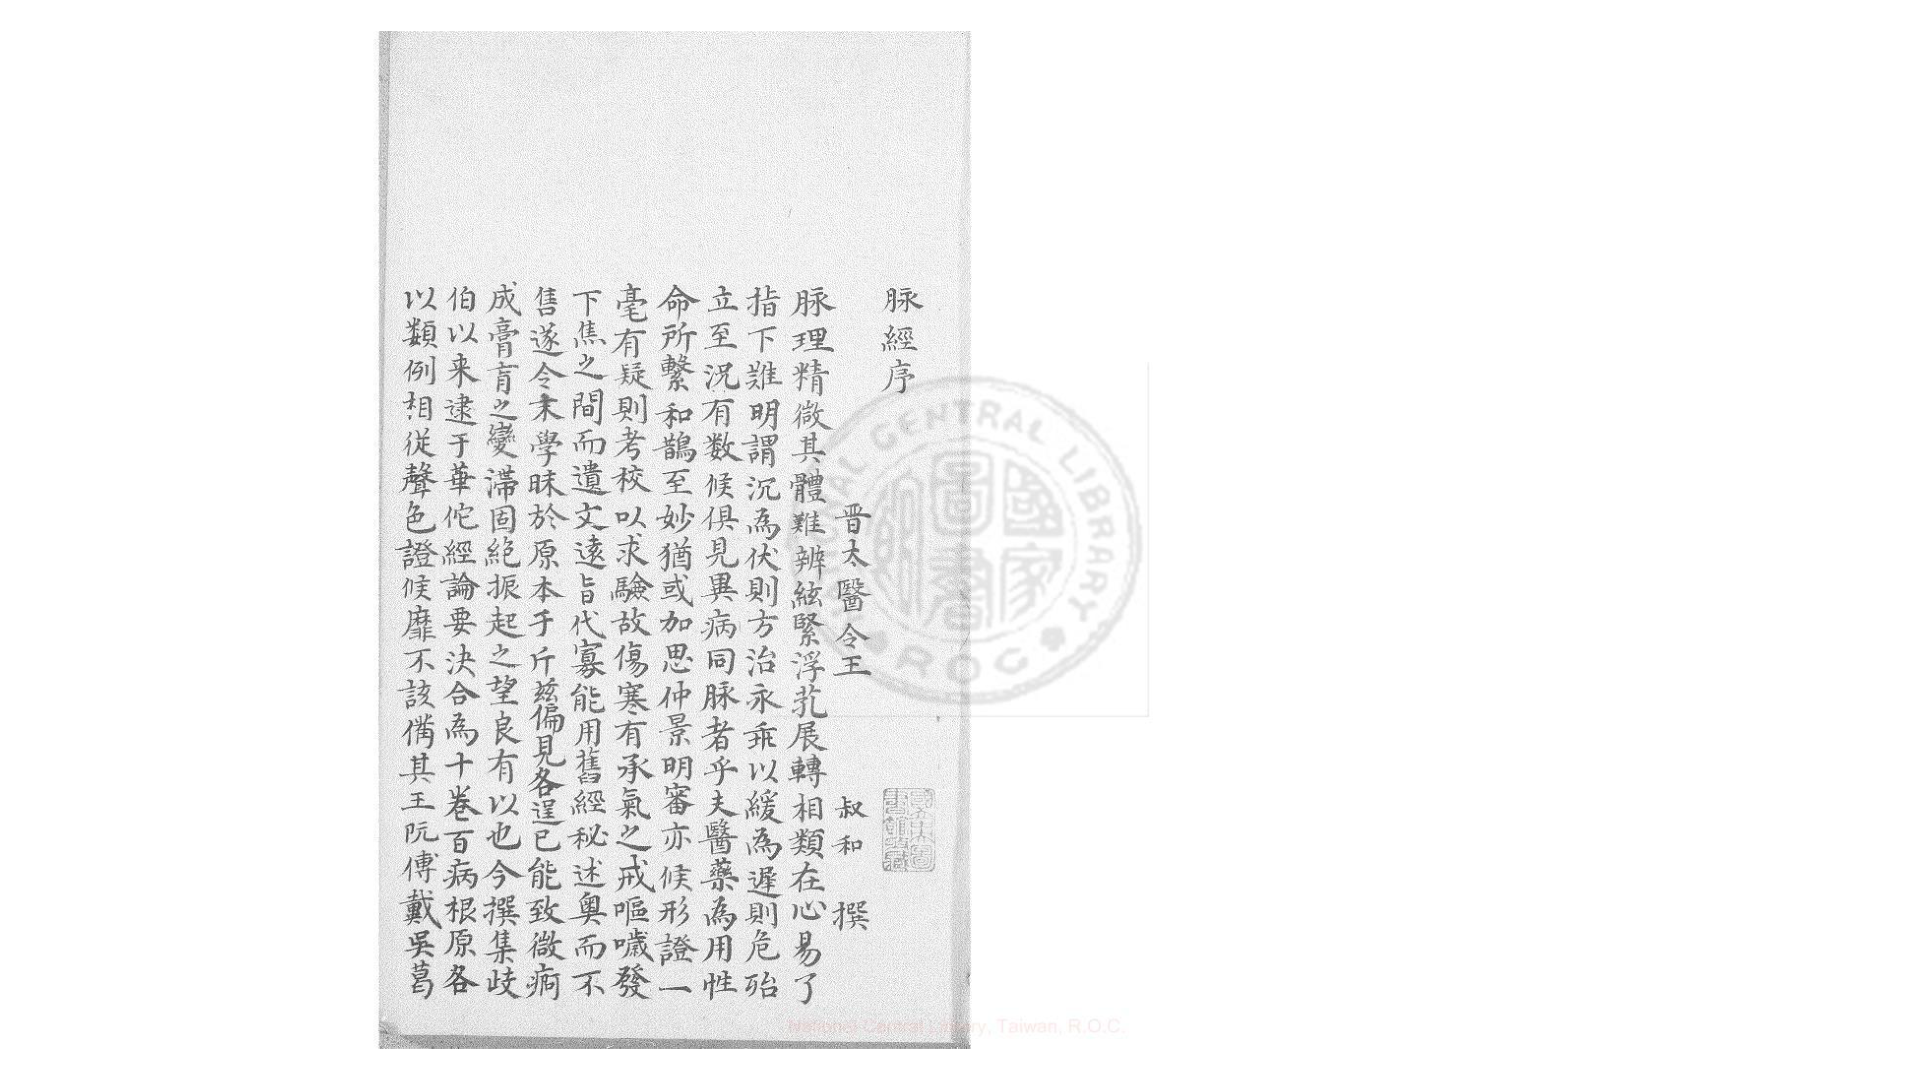 脉經序
晋太醫令王 叔和 撰
脉理精微其體難辨絃緊浮芤展轉相類在心易了
指下難明謂沉為伏則方治永乖以緩為遲則危殆
立至況有数候俱見異病同脉者乎夫醫藥為用性
命所繫和鵲至妙猶或加思仲景明審亦候形證一
毫有疑則考校以求驗故傷寒有承氣之戒嘔噦發
下焦之間而遺文遠旨代寡能用舊經秘述奥而不
售遂令末學昧於原本于斤玆偏見各逞已能致微痾
成膏肓之變滯固絶振起之望良有以也今撰集歧
伯以来逮于華佗經論要决合為十卷百病根原各
以類例相從聲色證候靡不該備其王阮傅戴吳葛
NATIONAL CENTRAL LIBRARY
R.O.C
國家圖書館
National Central Library, Taiwan, R.O.C.